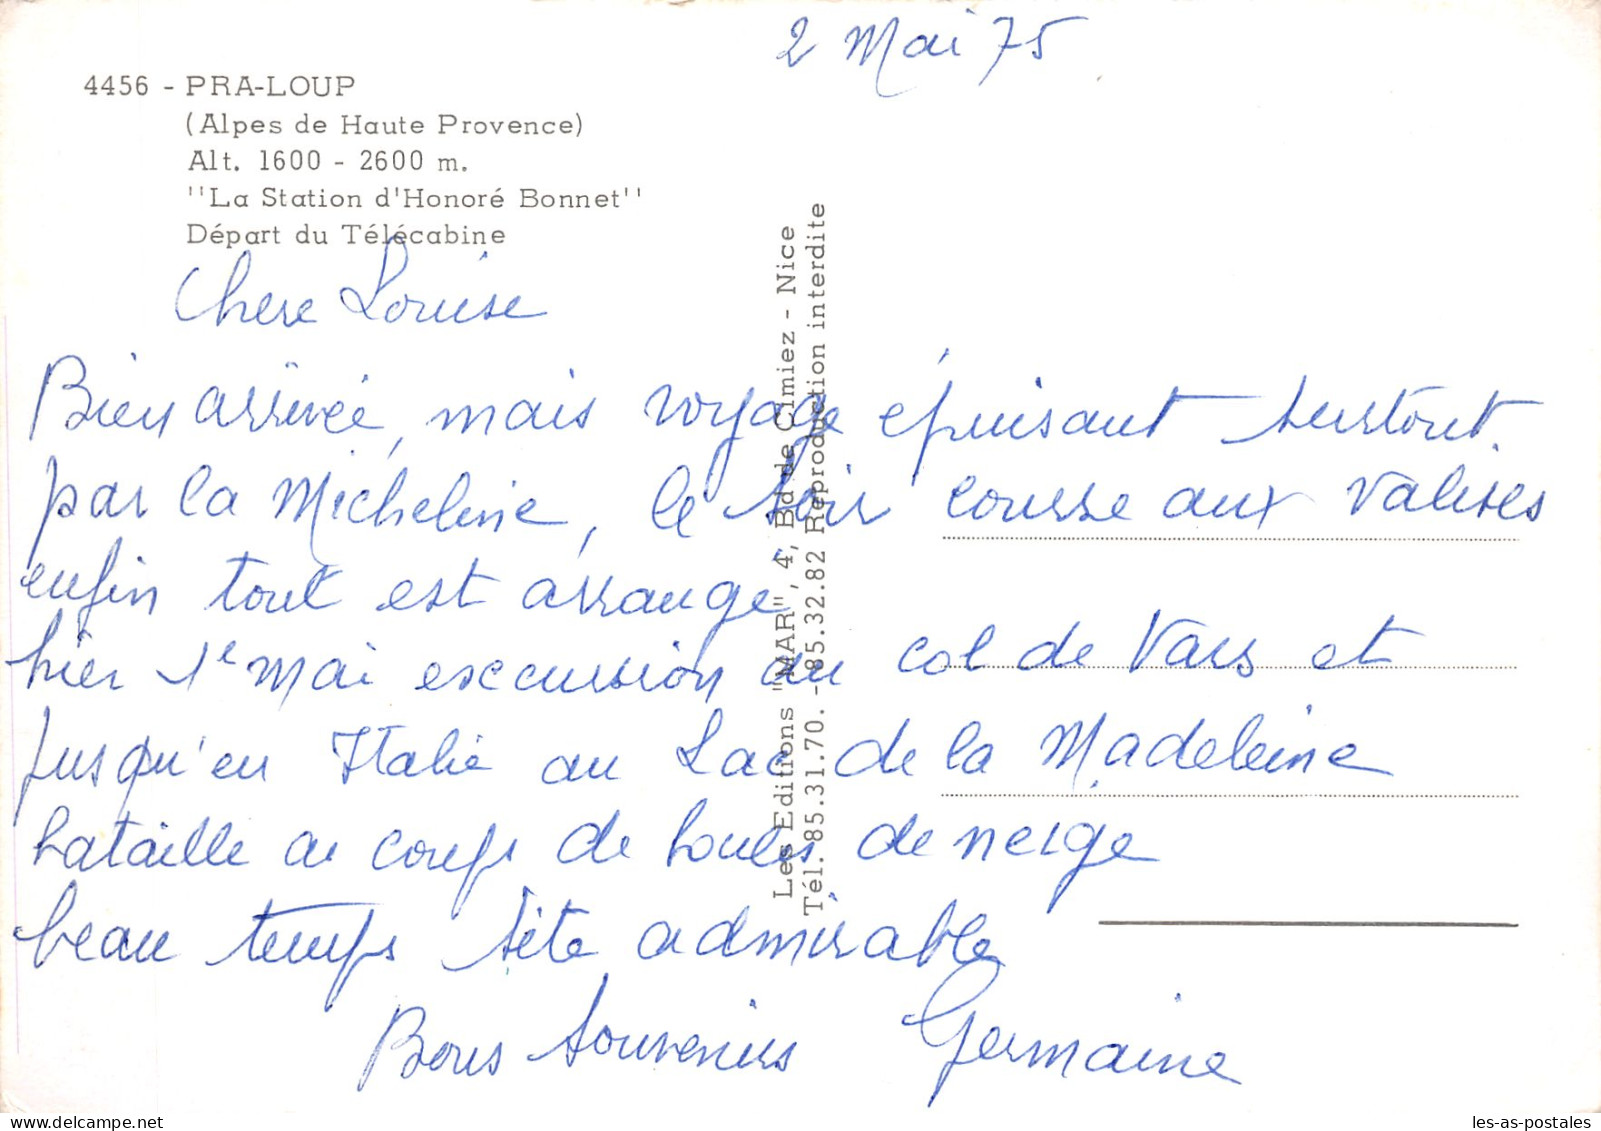 2 Mai 75
4456 - PRA-LOUP
(Alpes de Haute Provence)
Alt. 1600 - 2600 m.
"La Station d'Honoré Bonnet"
Départ du Télécabine
Chere Louise
Bien arrivée, mais voyage épuisant surtout
par la Micheline, le soir course aux valises
enfin tout est arrangé
hier 1e mai excursion au col de Vars et
jusqu'en Italie au Lac de la Madeleine
bataille a coups de boules de neige
beau temps site admirable
Bons Souvenirs Germaine
Les Editions "MAR", 4, Bd de Cimiez - Nice
Tél. 85.31.70. - 85.32.82 Reproduction interdite
les-as-postales
delcampe.net